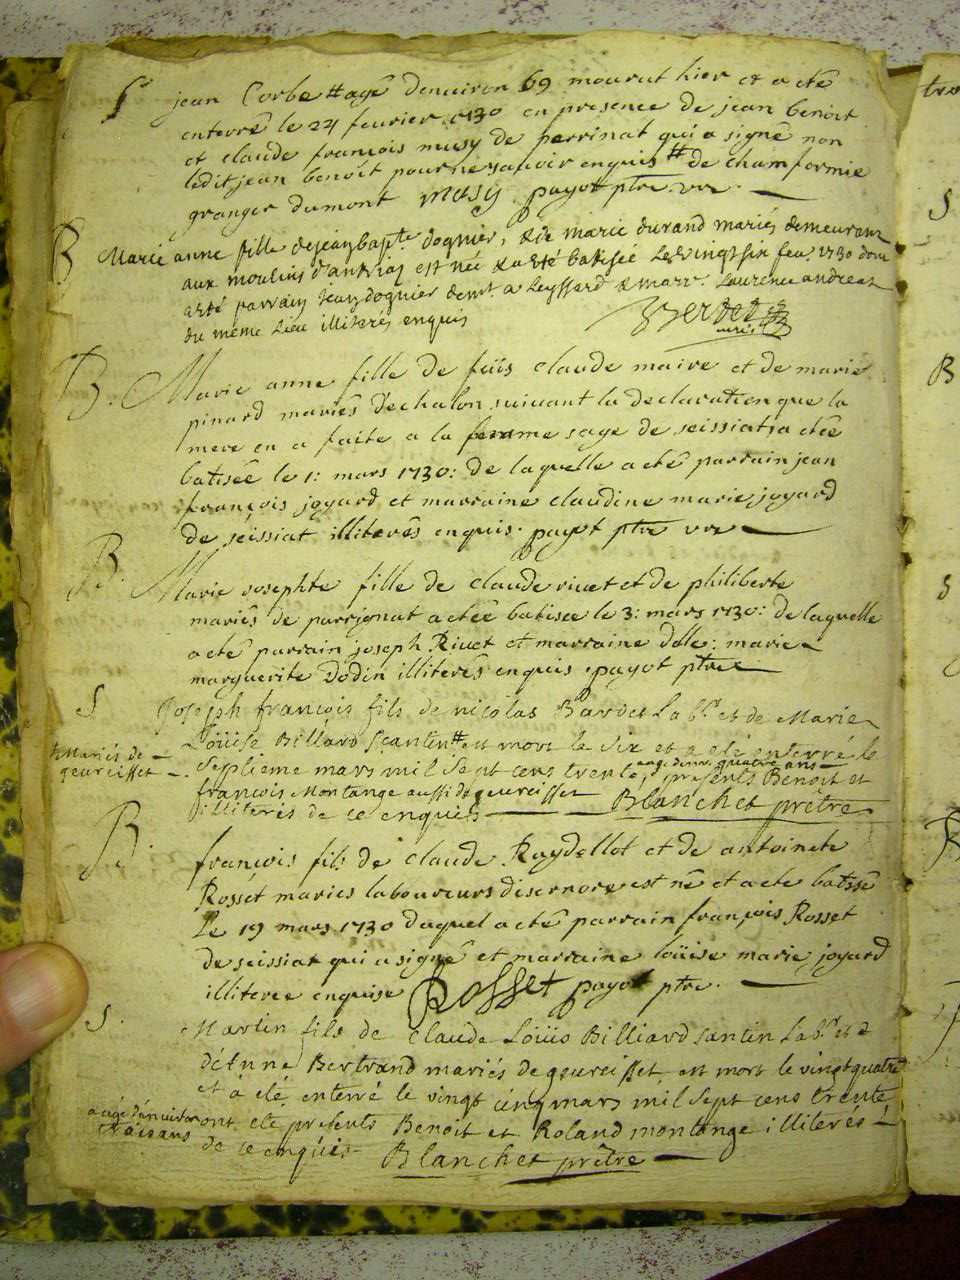 S jean Corbet # agé denviron 69 mourut hier et a eté
enterré le 24 fevrier 1730 en presence de jean benoit
et claude françois musy de perrinat qui a signé non
ledit jean benoit pour ne savoir enquis # de chamformie
granger dumont musy payot ptre vre
B Marie anne fille de jean bapte dognier, & de marie durand mariés demeurant
aux moulins d'antriaz est née & a eté batisée le vingt six feu. 1730 dont
a eté parrain jean dognier demt. a Leyssard & marr. Laurence andreat
du meme Lieu illiterés enquis
B. Marie anne fille de fûs claude maire et de marie
pinard mariés d'echalon suivant la declaration que la
mere en a faite a la femme sage de seissiat a eté
batisée le 1: mars 1730: de laquelle a eté parrain jean
françois joyard et marraine claudine marie joyard
de seissiat illiterés enquis. payot ptre vre
B. Marie josephte fille de claude rivet et de philiberte
mariés de parrignat a eté batisée le 3: mars 1730: de laquelle
a eté parrain joseph Rivet et marraine dlle: marie
marguerite Dodin illiterés enquis payot ptre
S Joseph françois fils de nicolas Bardet Labr. et de Marie
Loüise Billard Santin # est mort le six et a eté enterré le
# Mariés de
geureisset
septieme mars mil sept cens trente, agé denv. quatre ans presents Benoit et
françois Montange aussi de geureisset
illiterés de ce enquis Blanchet prêtre
B. françois fils de claude Raydellot et de antoinete
Rosset mariés laboureurs disernore est né et a eté batisé
le 19 mars 1730 duquel a eté parrain françois Rosset
de seissiat qui a signé et marraine loüise marie joyard
illiteree enquise Rosset payot ptre.
S. Martin fils de claude Loüis Billiard Santin Labr. et
d'Anne Bertrand mariés de geureisset est mort le vingt quatre
et a eté enterré le vingt cinq mars mil sept cens trente
agé d'environ
trois ans
ont eté presents Benoit et Roland montange illiterés
de ce enquis Blanchet prêtre